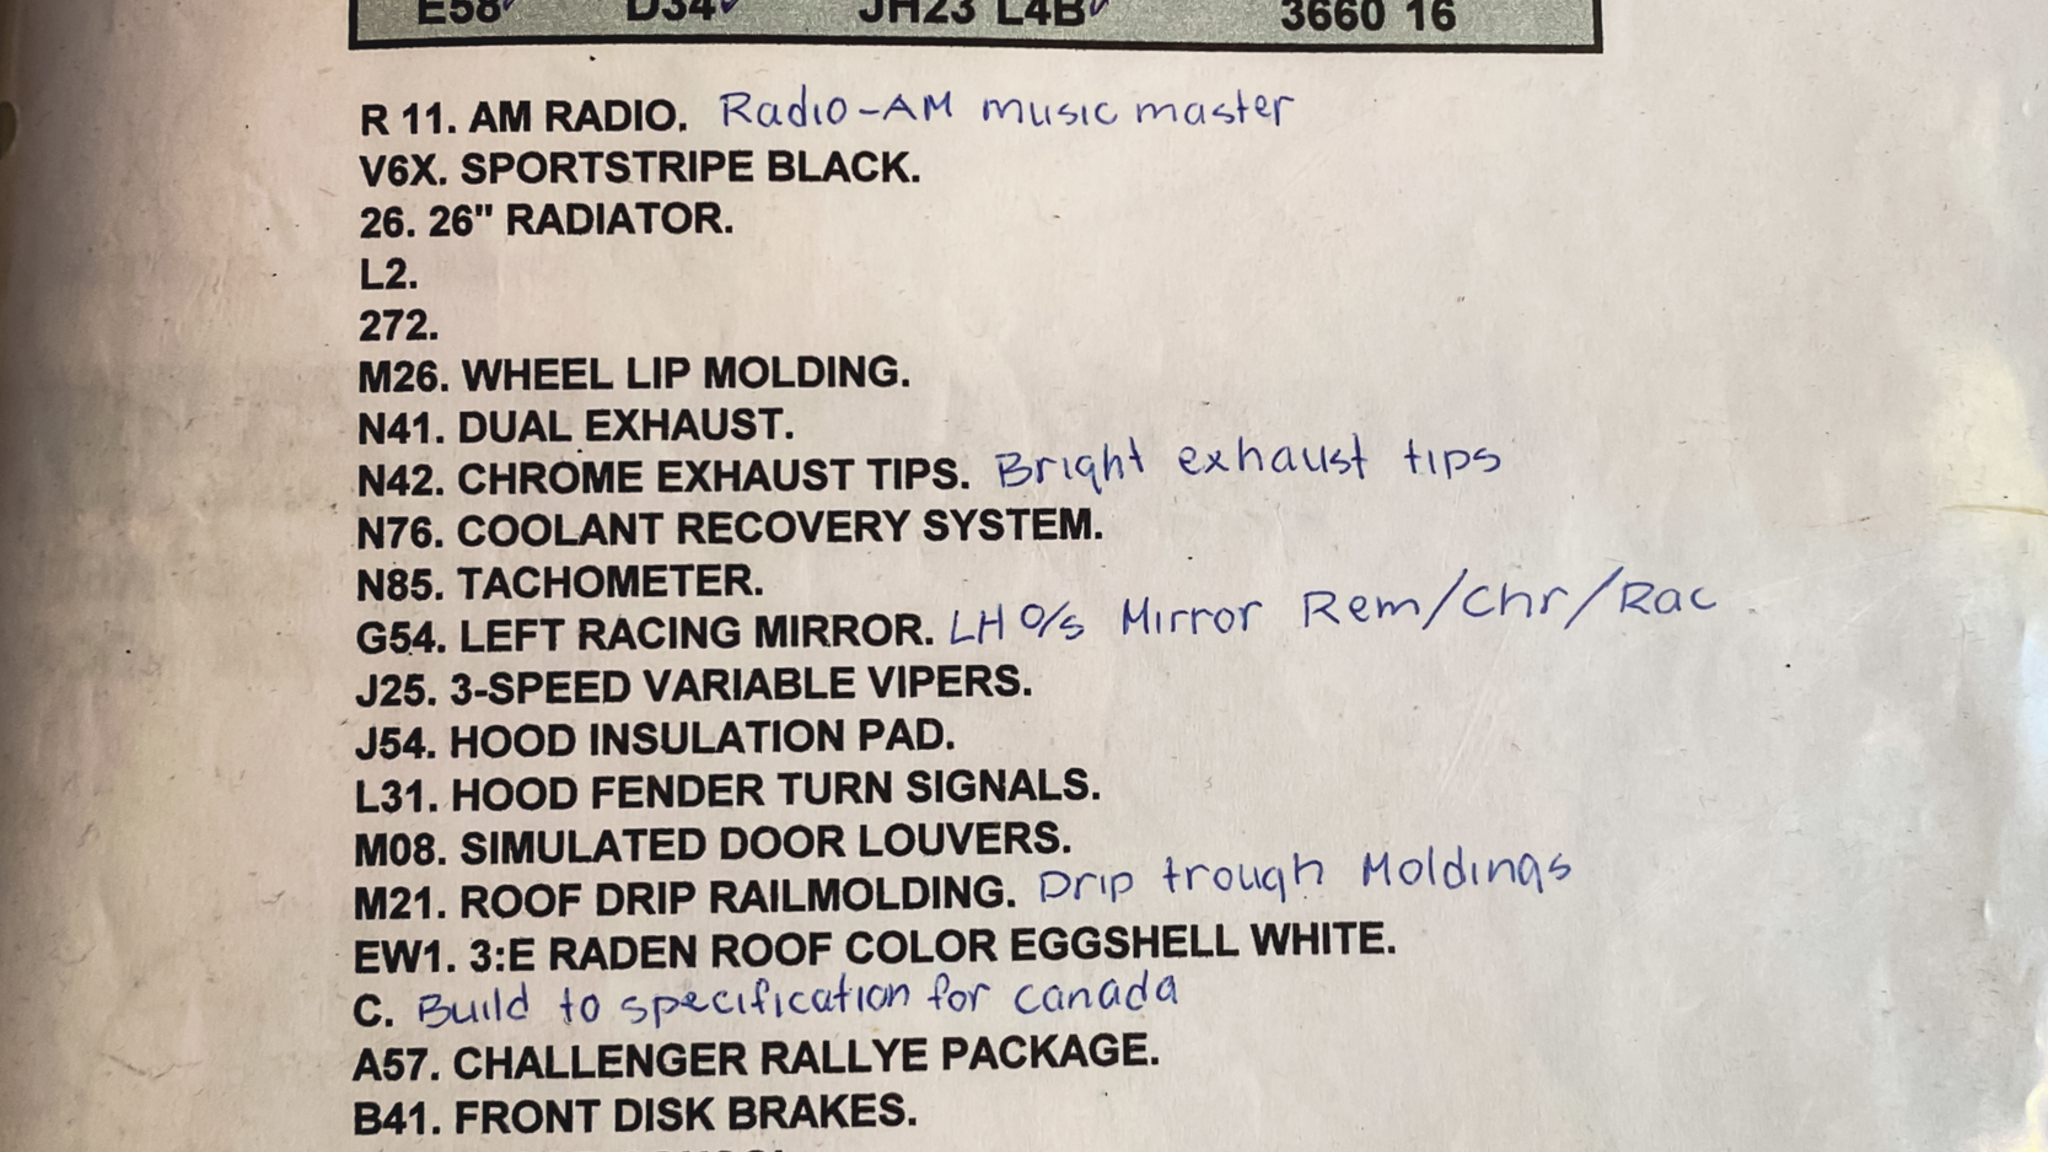 E58 D34 JH23 L4B 3660 16
R 11. AM RADIO. Radio-AM music master
V6X. SPORTSTRIPE BLACK.
26. 26" RADIATOR.
L2.
272.
M26. WHEEL LIP MOLDING.
N41. DUAL EXHAUST.
N42. CHROME EXHAUST TIPS. Bright exhaust tips
N76. COOLANT RECOVERY SYSTEM.
N85. TACHOMETER.
G54. LEFT RACING MIRROR. LH o/s Mirror Rem/Chr/Rac
J25. 3-SPEED VARIABLE VIPERS.
J54. HOOD INSULATION PAD.
L31. HOOD FENDER TURN SIGNALS.
M08. SIMULATED DOOR LOUVERS.
M21. ROOF DRIP RAILMOLDING. Drip trough Moldings
EW1. 3:E RADEN ROOF COLOR EGGSHELL WHITE.
C. Build to specification for canada
A57. CHALLENGER RALLYE PACKAGE.
B41. FRONT DISK BRAKES.